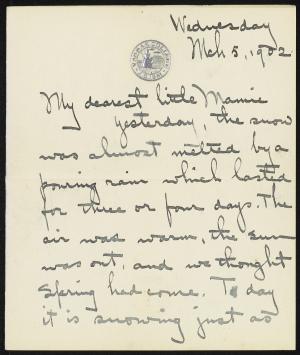 Wednesday
Mch 5, 1902
My dearest little Mamie
yesterday, the snow
was almost melted by a
pouring rain which lasted
for three or four days. The
air was warm, the sun
was out, and we thought
Spring had come. To day
it is snowing just as